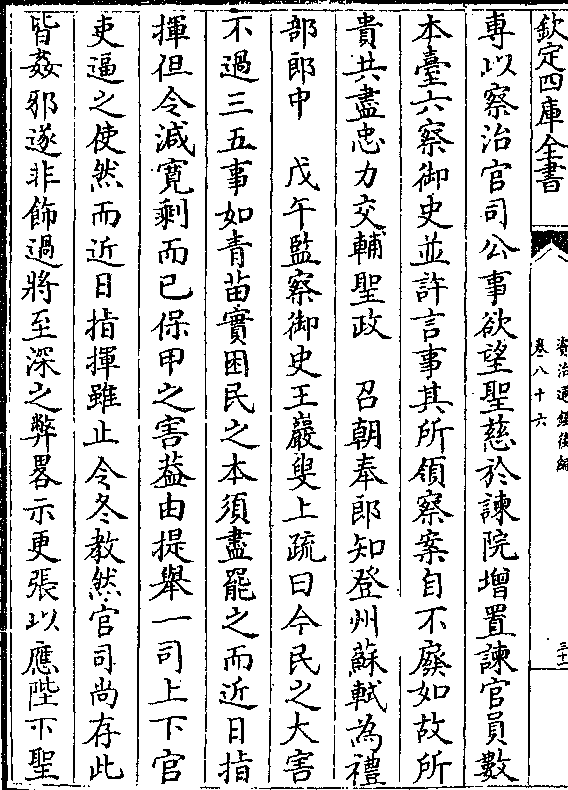 欽定四庫全書
資治通鑑後編
卷八十六
專以察治官司公事欲望聖慈於諫院增置諫官員數
本臺六察御史並許言事其所領察案自不廢如故所
貴共盡忠力交輔聖政　召朝奉郎知登州蘇軾為禮
部郎中　戊午監察御史王巖叟上疏曰今民之大害
不過三五事如青苗實困民之本須盡罷之而近日指
揮但令減寬剩而已保甲之害葢由提舉一司上下官
吏逼之使然而近日指揮雖止令冬教然官司尚存此
皆姦邪遂非飾過將至深之弊畧示更張以應陛下聖